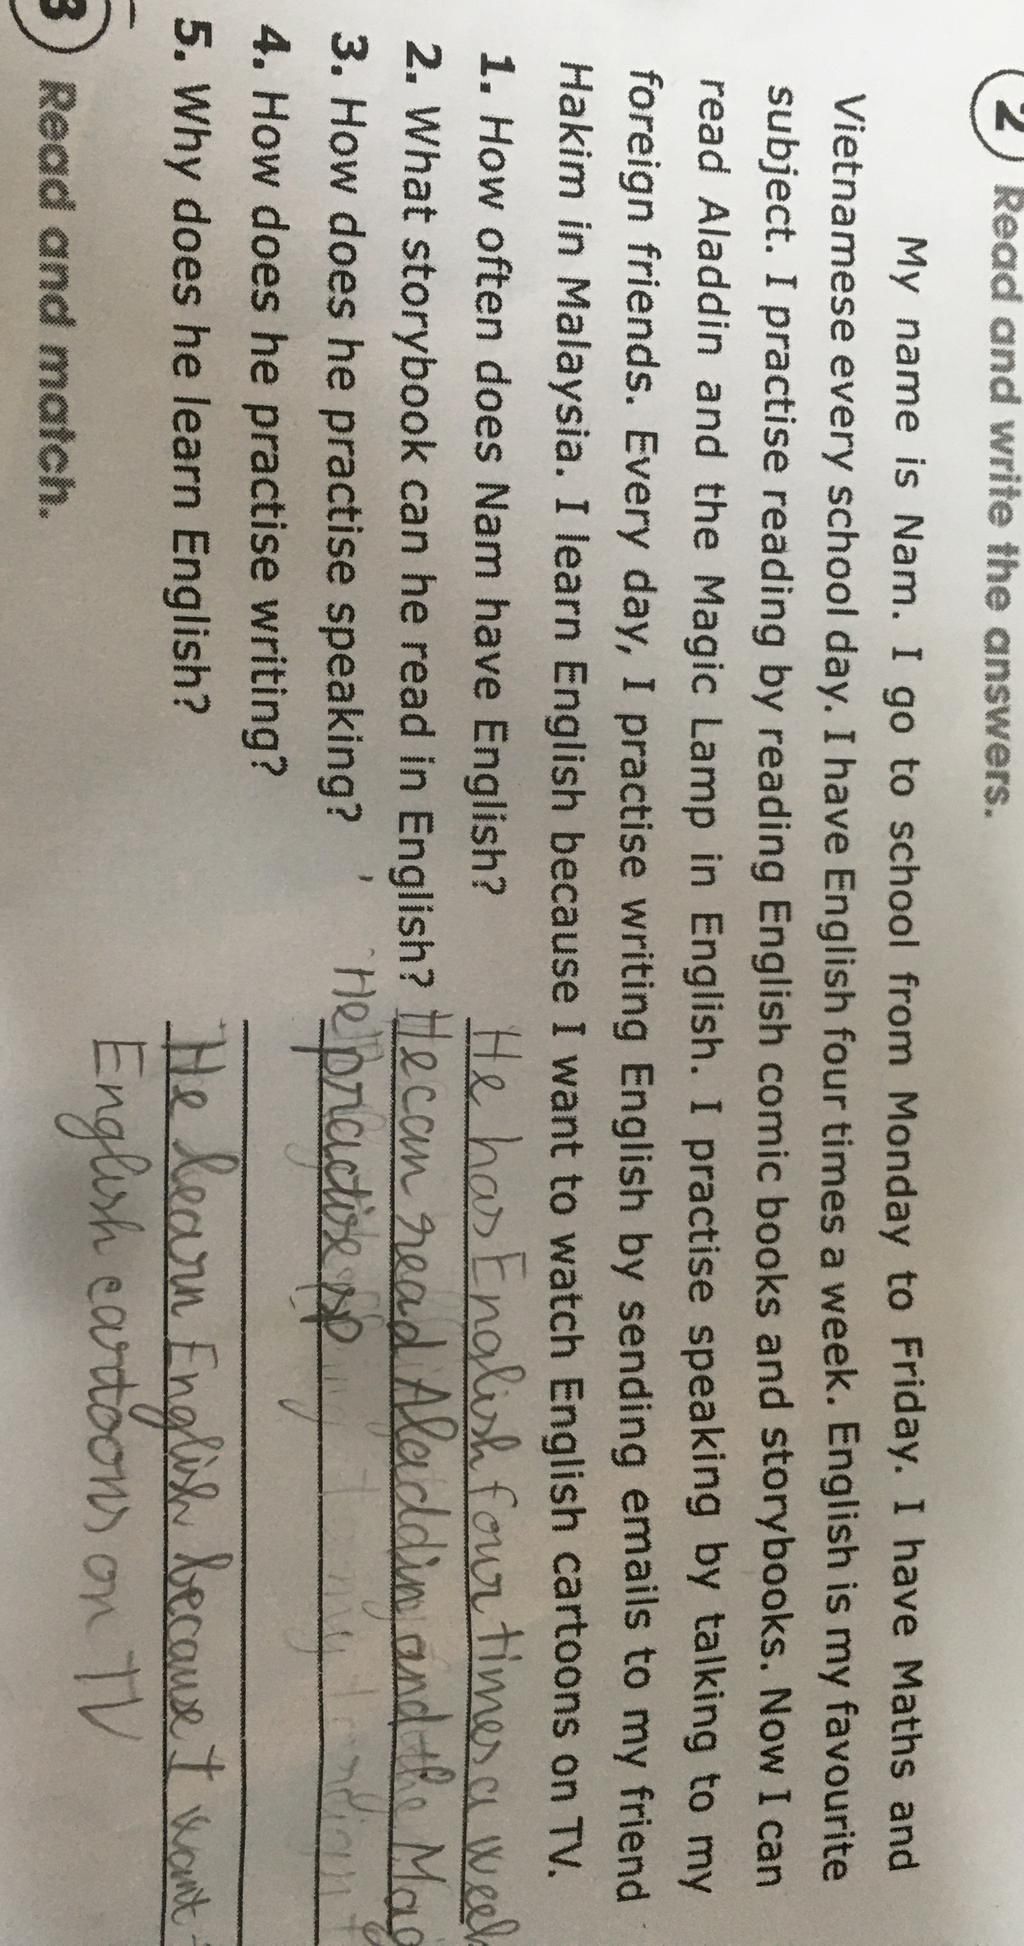 2 Read and write the answers.
My name is Nam. I go to school from Monday to Friday. I have Maths and
Vietnamese every school day. I have English four times a week. English is my favourite
subject. I practise reading by reading English comic books and storybooks. Now I can
read Aladdin and the Magic Lamp in English. I practise speaking by talking to my
foreign friends. Every day, I practise writing English by sending emails to my friend
Hakim in Malaysia. I learn English because I want to watch English cartoons on TV.
1. How often does Nam have English? He has English four times a week
2. What storybook can he read in English? He can read Aladdin and the Mag
3. How does he practise speaking? He practise sp
4. How does he practise writing?
5. Why does he learn English? He learn English because I want
English cartoons on TV
3 Read and match.